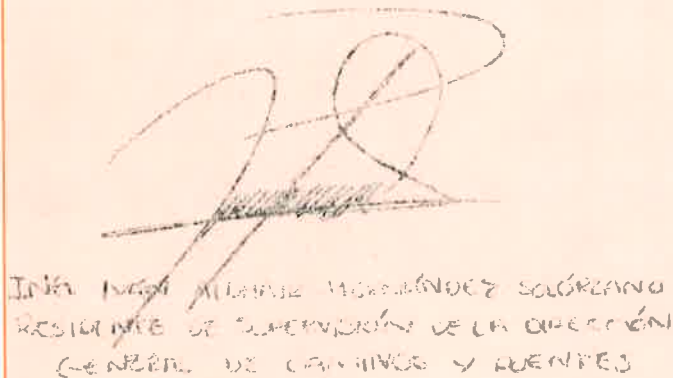 ING. IVAN HERNÁNDEZ SOLÓRZANO
RESIDENTE DE SUPERVISIÓN DE LA DIRECCIÓN
GENERAL DE CAMINOS Y PUENTES